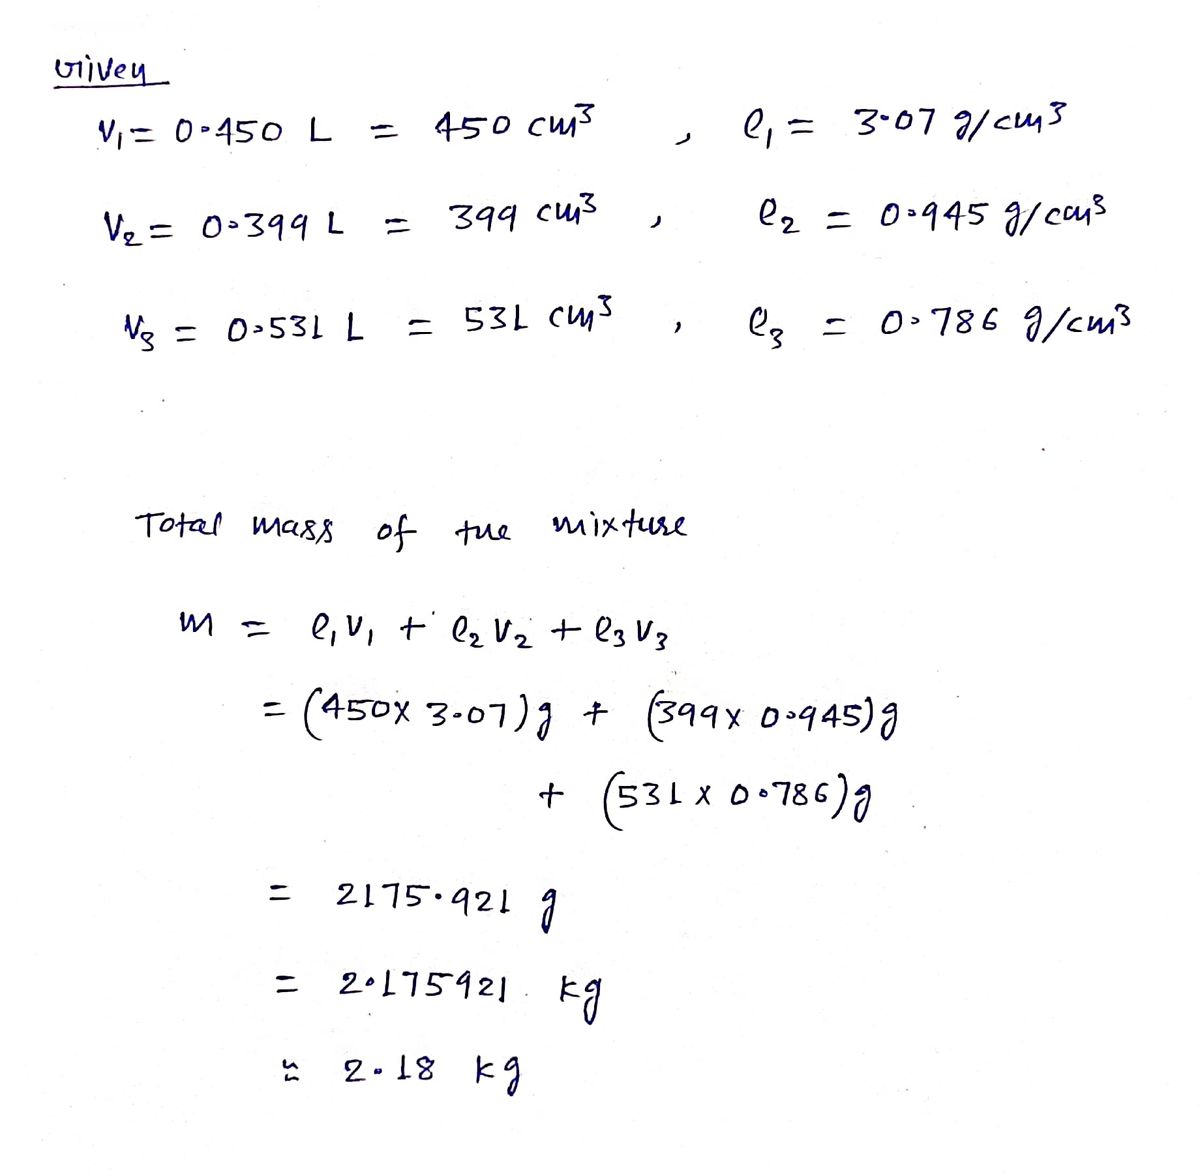 Given
V₁ = 0.450 L = 450 cm³ , ρ₁ = 3.07 g/cm³
V₂ = 0.399 L = 399 cm³ , ρ₂ = 0.945 g/cm³
V₃ = 0.531 L = 531 cm³ , ρ₃ = 0.786 g/cm³
Total mass of the mixture
m = ρ₁V₁ + ρ₂V₂ + ρ₃V₃
= (450 x 3.07)g + (399 x 0.945)g
+ (531 x 0.786)g
= 2175.921 g
= 2.175921 kg
≈ 2.18 kg